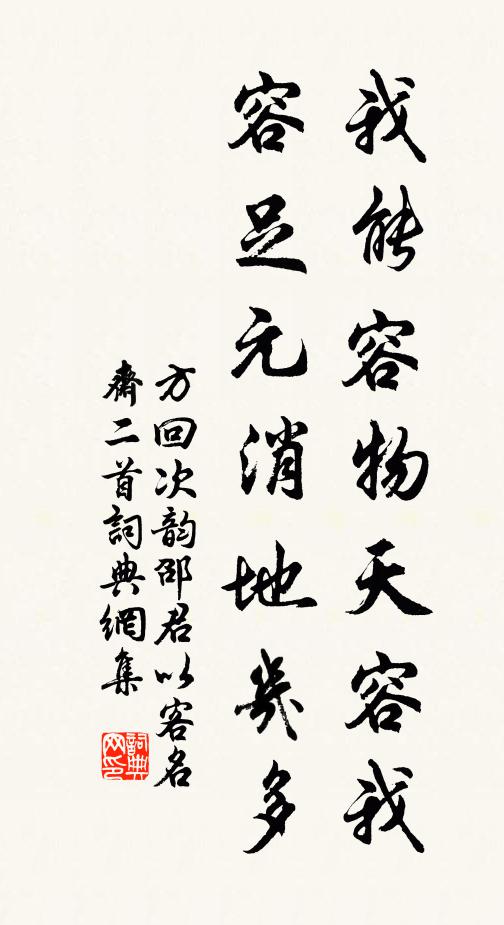 我能容物天容我
容足元消地幾多
方回次韵邵君以容名
齋二首詞典網集
詞典网印